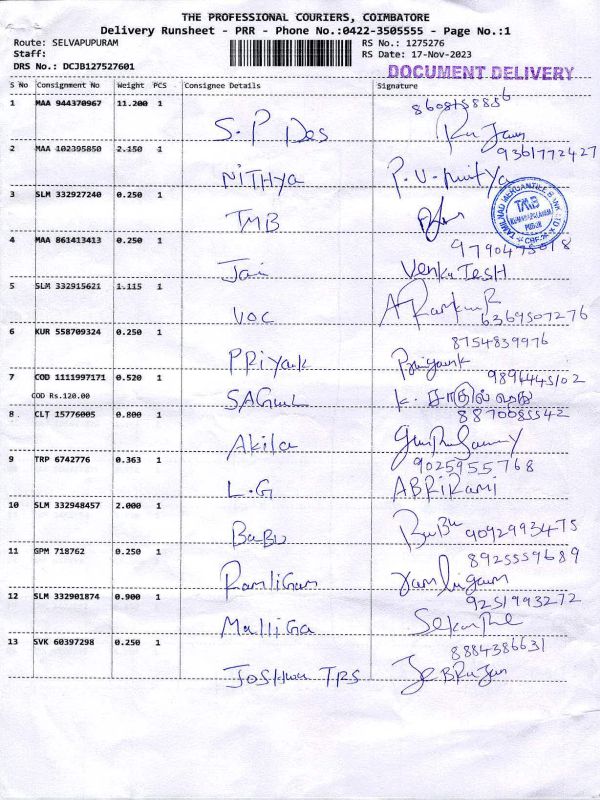 THE PROFESSIONAL COURIERS, COIMBATORE
Delivery Runsheet - PRR - Phone No.:0422-3505555 - Page No.:1
Route: SELVAPUPURAM
RS No.: 1275276
Staff:
RS Date: 17-Nov-2023
DRS No.: DCJB127527601
DOCUMENT DELIVERY
S No Consignment No Weight PCS Consignee Details Signature
1 MAA 944370967 11.200 1
8608158856
S.P Des
2 MAA 102395850 2.150 1
9361772427
NiTHYa
3 SLM 332927240 0.250 1
TMB
TAMILNAD MERCANTILE BANK LTD
TMB
4 MAA 861413413 0.250 1
Jai VenkaTESH
5 SLM 332915621 1.115 1
VOC
6369507276
6 KUR 558709324 0.250 1
8754839976
PRiyak
7 COD 1111997171 0.520 1
9894445102
COD Rs.120.00
8 CLT 15776005 0.800 1
8870085542
Akila
9 TRP 6742776 0.363 1
9025955768
L.G ABRiRami
10 SLM 332948457 2.000 1
BaBu BaBu 9092993475
11 GPM 718762 0.250 1
8925559689
RamliGam
12 SLM 332901874 0.900 1
9251993272
MalliGa
13 SVK 60397298 0.250 1
8884386631
JOSHua TRS